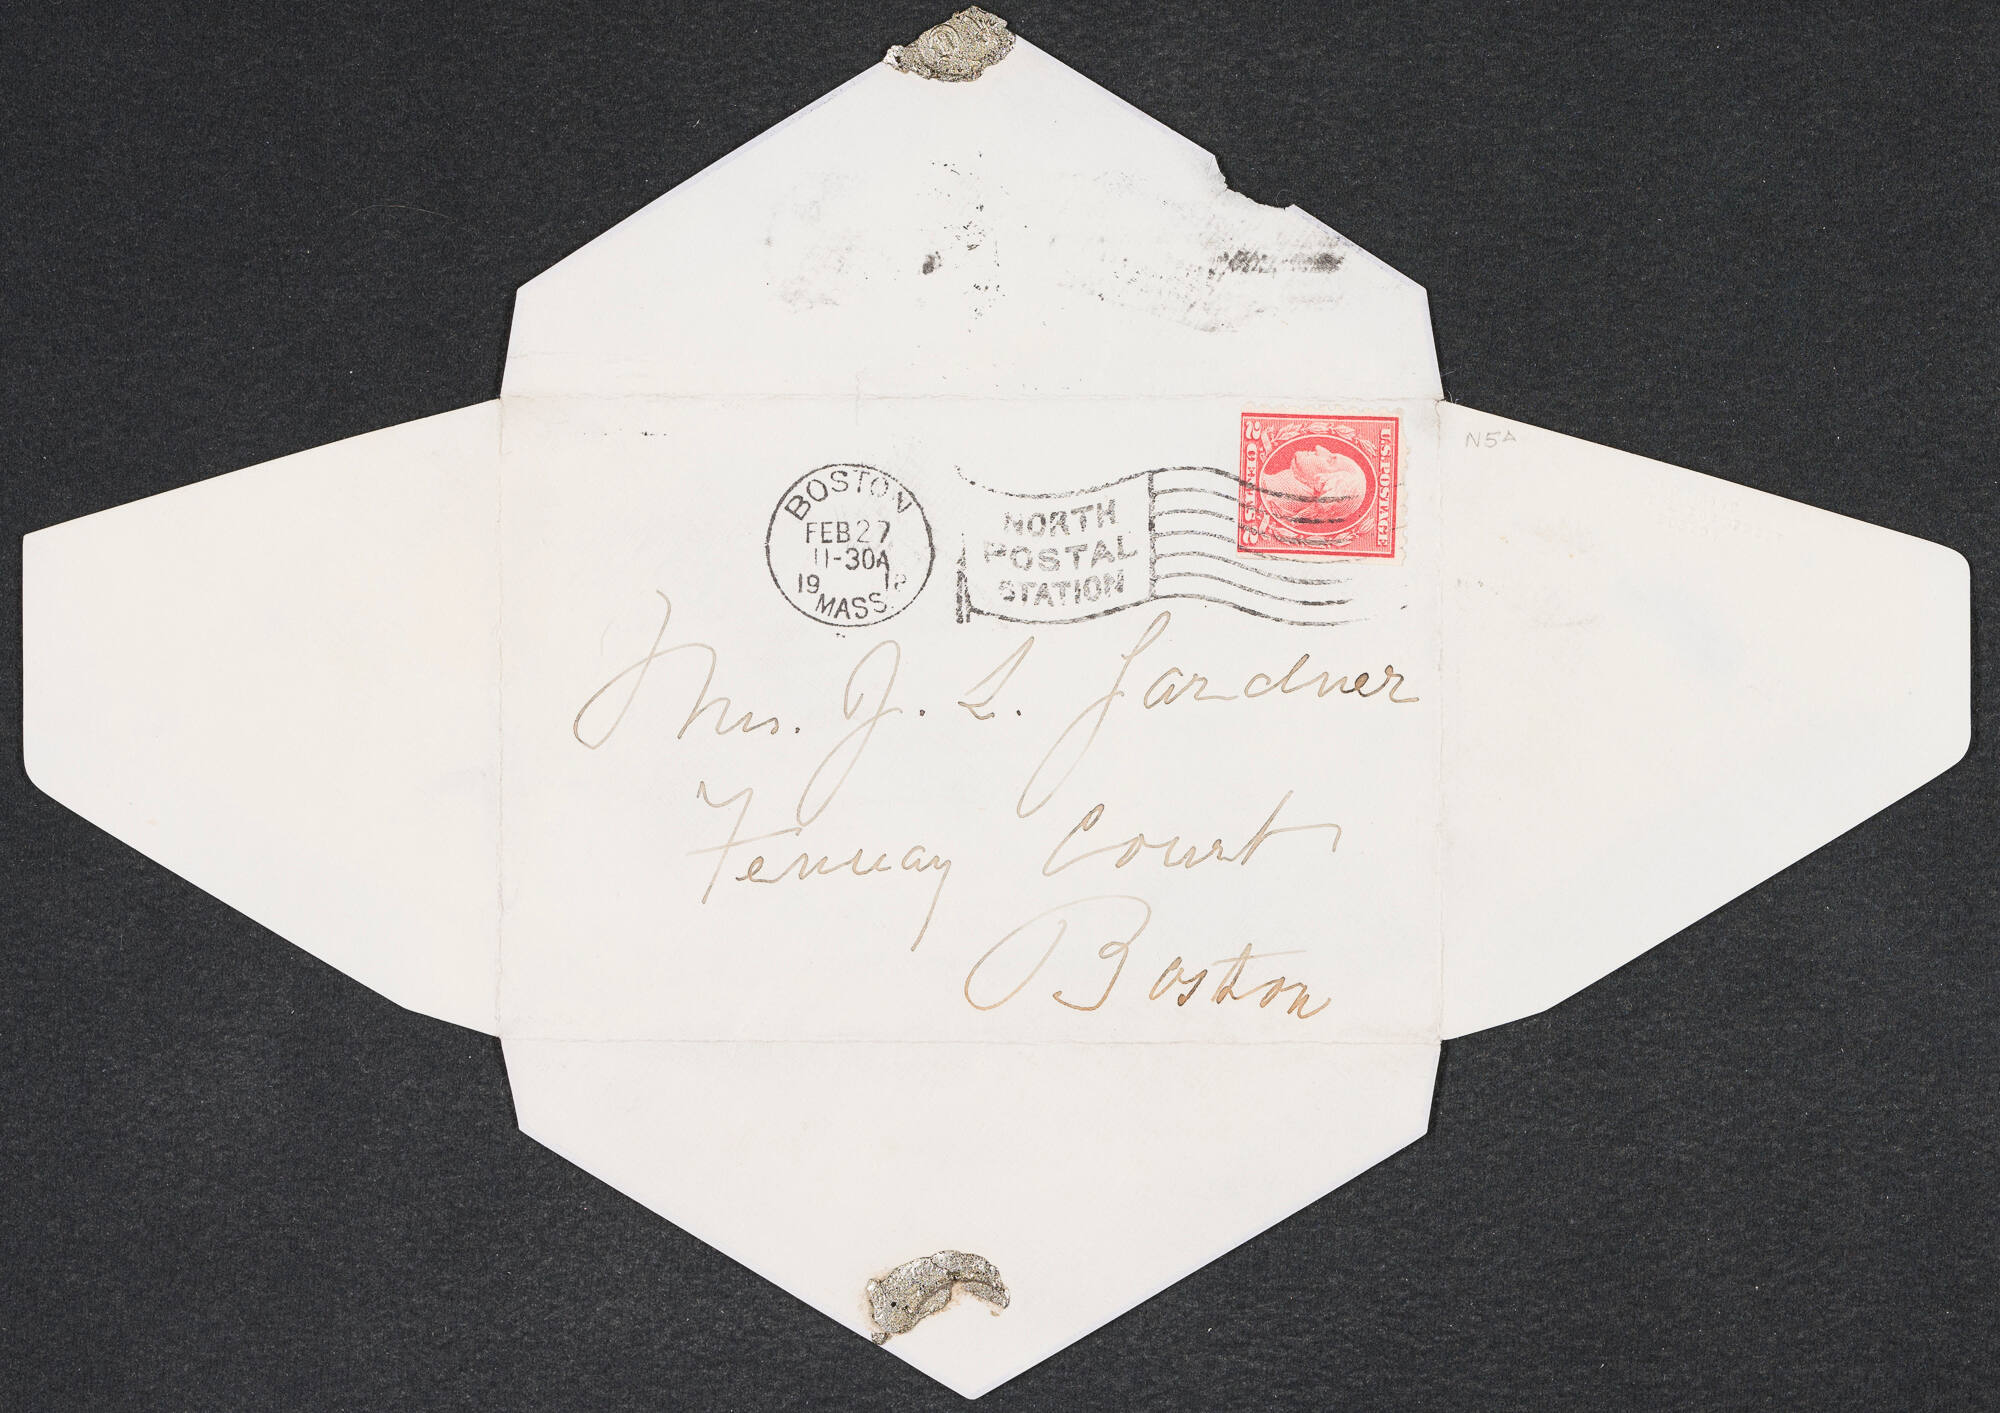 BOSTON
FEB 27
11-30A
19 12
MASS.
NORTH
POSTAL
STATION
U.S. POSTAGE
2 CENTS 2
N5A
Mrs. J. L. Gardner
Fenway Court
Boston